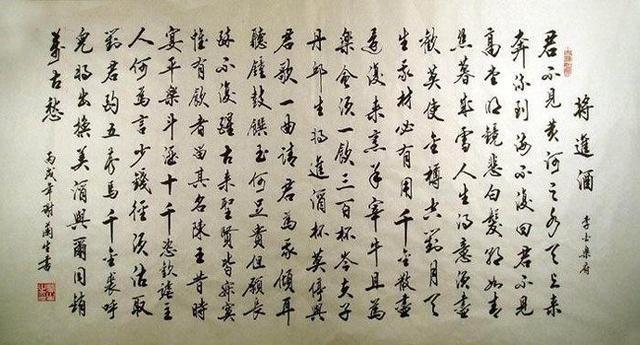 將進酒
李白樂府
君不見黃河之水天上來
奔流到海不復回君不見
高堂明鏡悲白髮朝如青
絲暮成雪人生得意須盡
歡莫使金樽空對月天
生我材必有用千金散盡
還復來烹羊宰牛且為
樂會須一飲三百杯岑夫子
丹邱生將進酒杯莫停與
君歌一曲請君為我傾耳
聽鐘鼓饌玉何足貴但願長
醉不復醒古來聖賢皆寂寞
惟有飲者留其名陳王昔時
宴平樂斗酒十千恣歡謔主
人何為言少錢徑須沽取
對君酌五花馬千金裘呼
兒將出換美酒與爾同銷
萬古愁
丙戌年 生書